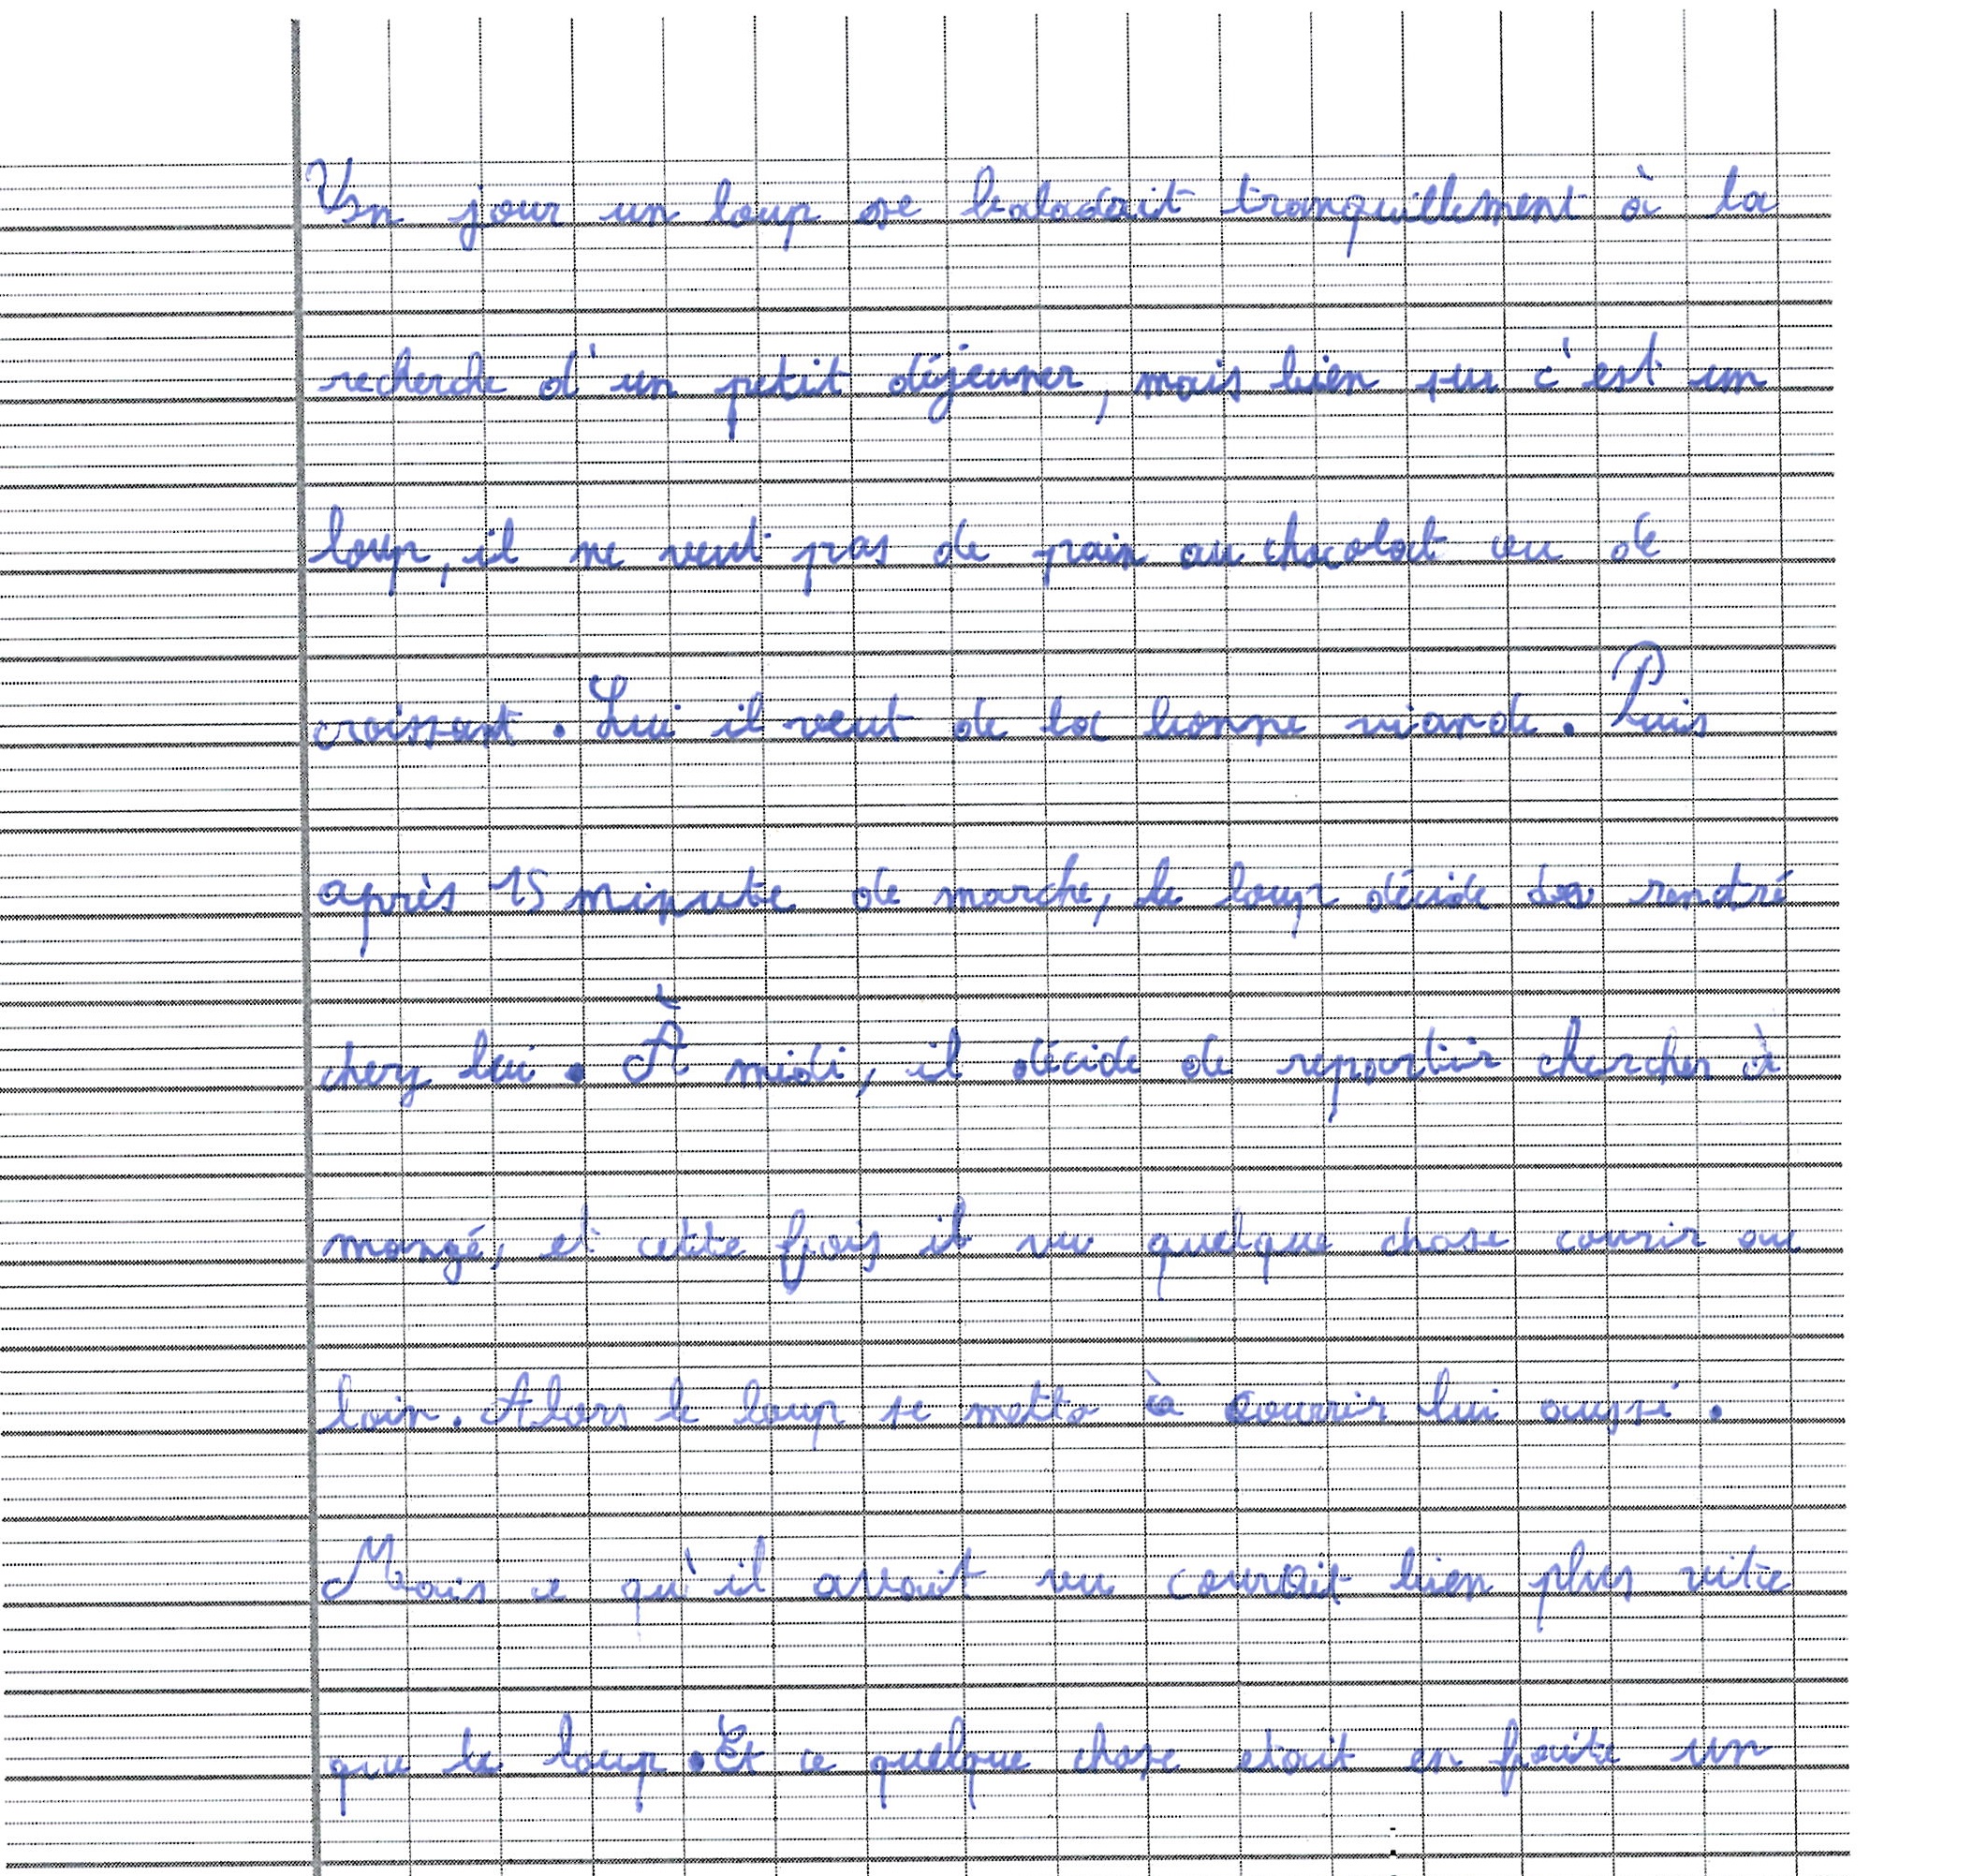 Un jour un loup se baladait tranquillement à la
recherche d'un petit déjeuner, mais bien sur c'est un
loup, il ne veut pas de pain au chocolat ou de
croissant. Lui il veut de la bonne viande. Puis
après 15 minute de marche, le loup décide de rentré
chez lui. À midi, il décide de repartir chercher à
mangé, et cette fois il vu quelque chose courir au
loin. Alors le loup se metta à courrir lui aussi.
Mais ce qu'il avait vu courait bien plus vite
que le loup. Et ce quelque chose etait en faite un